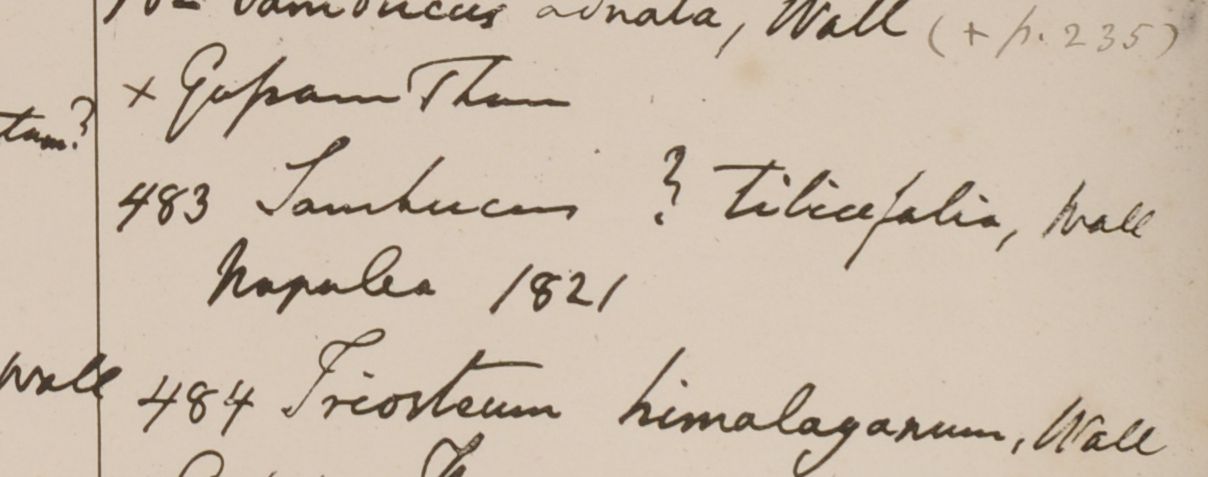 Sambucus adnata, Wall (+ p. 235)
+ Gossam Than
tum?
483 Sambucus ? tiliaefolia, Wall
Napalea 1821
Wall
484 Triosteum himalayanum, Wall